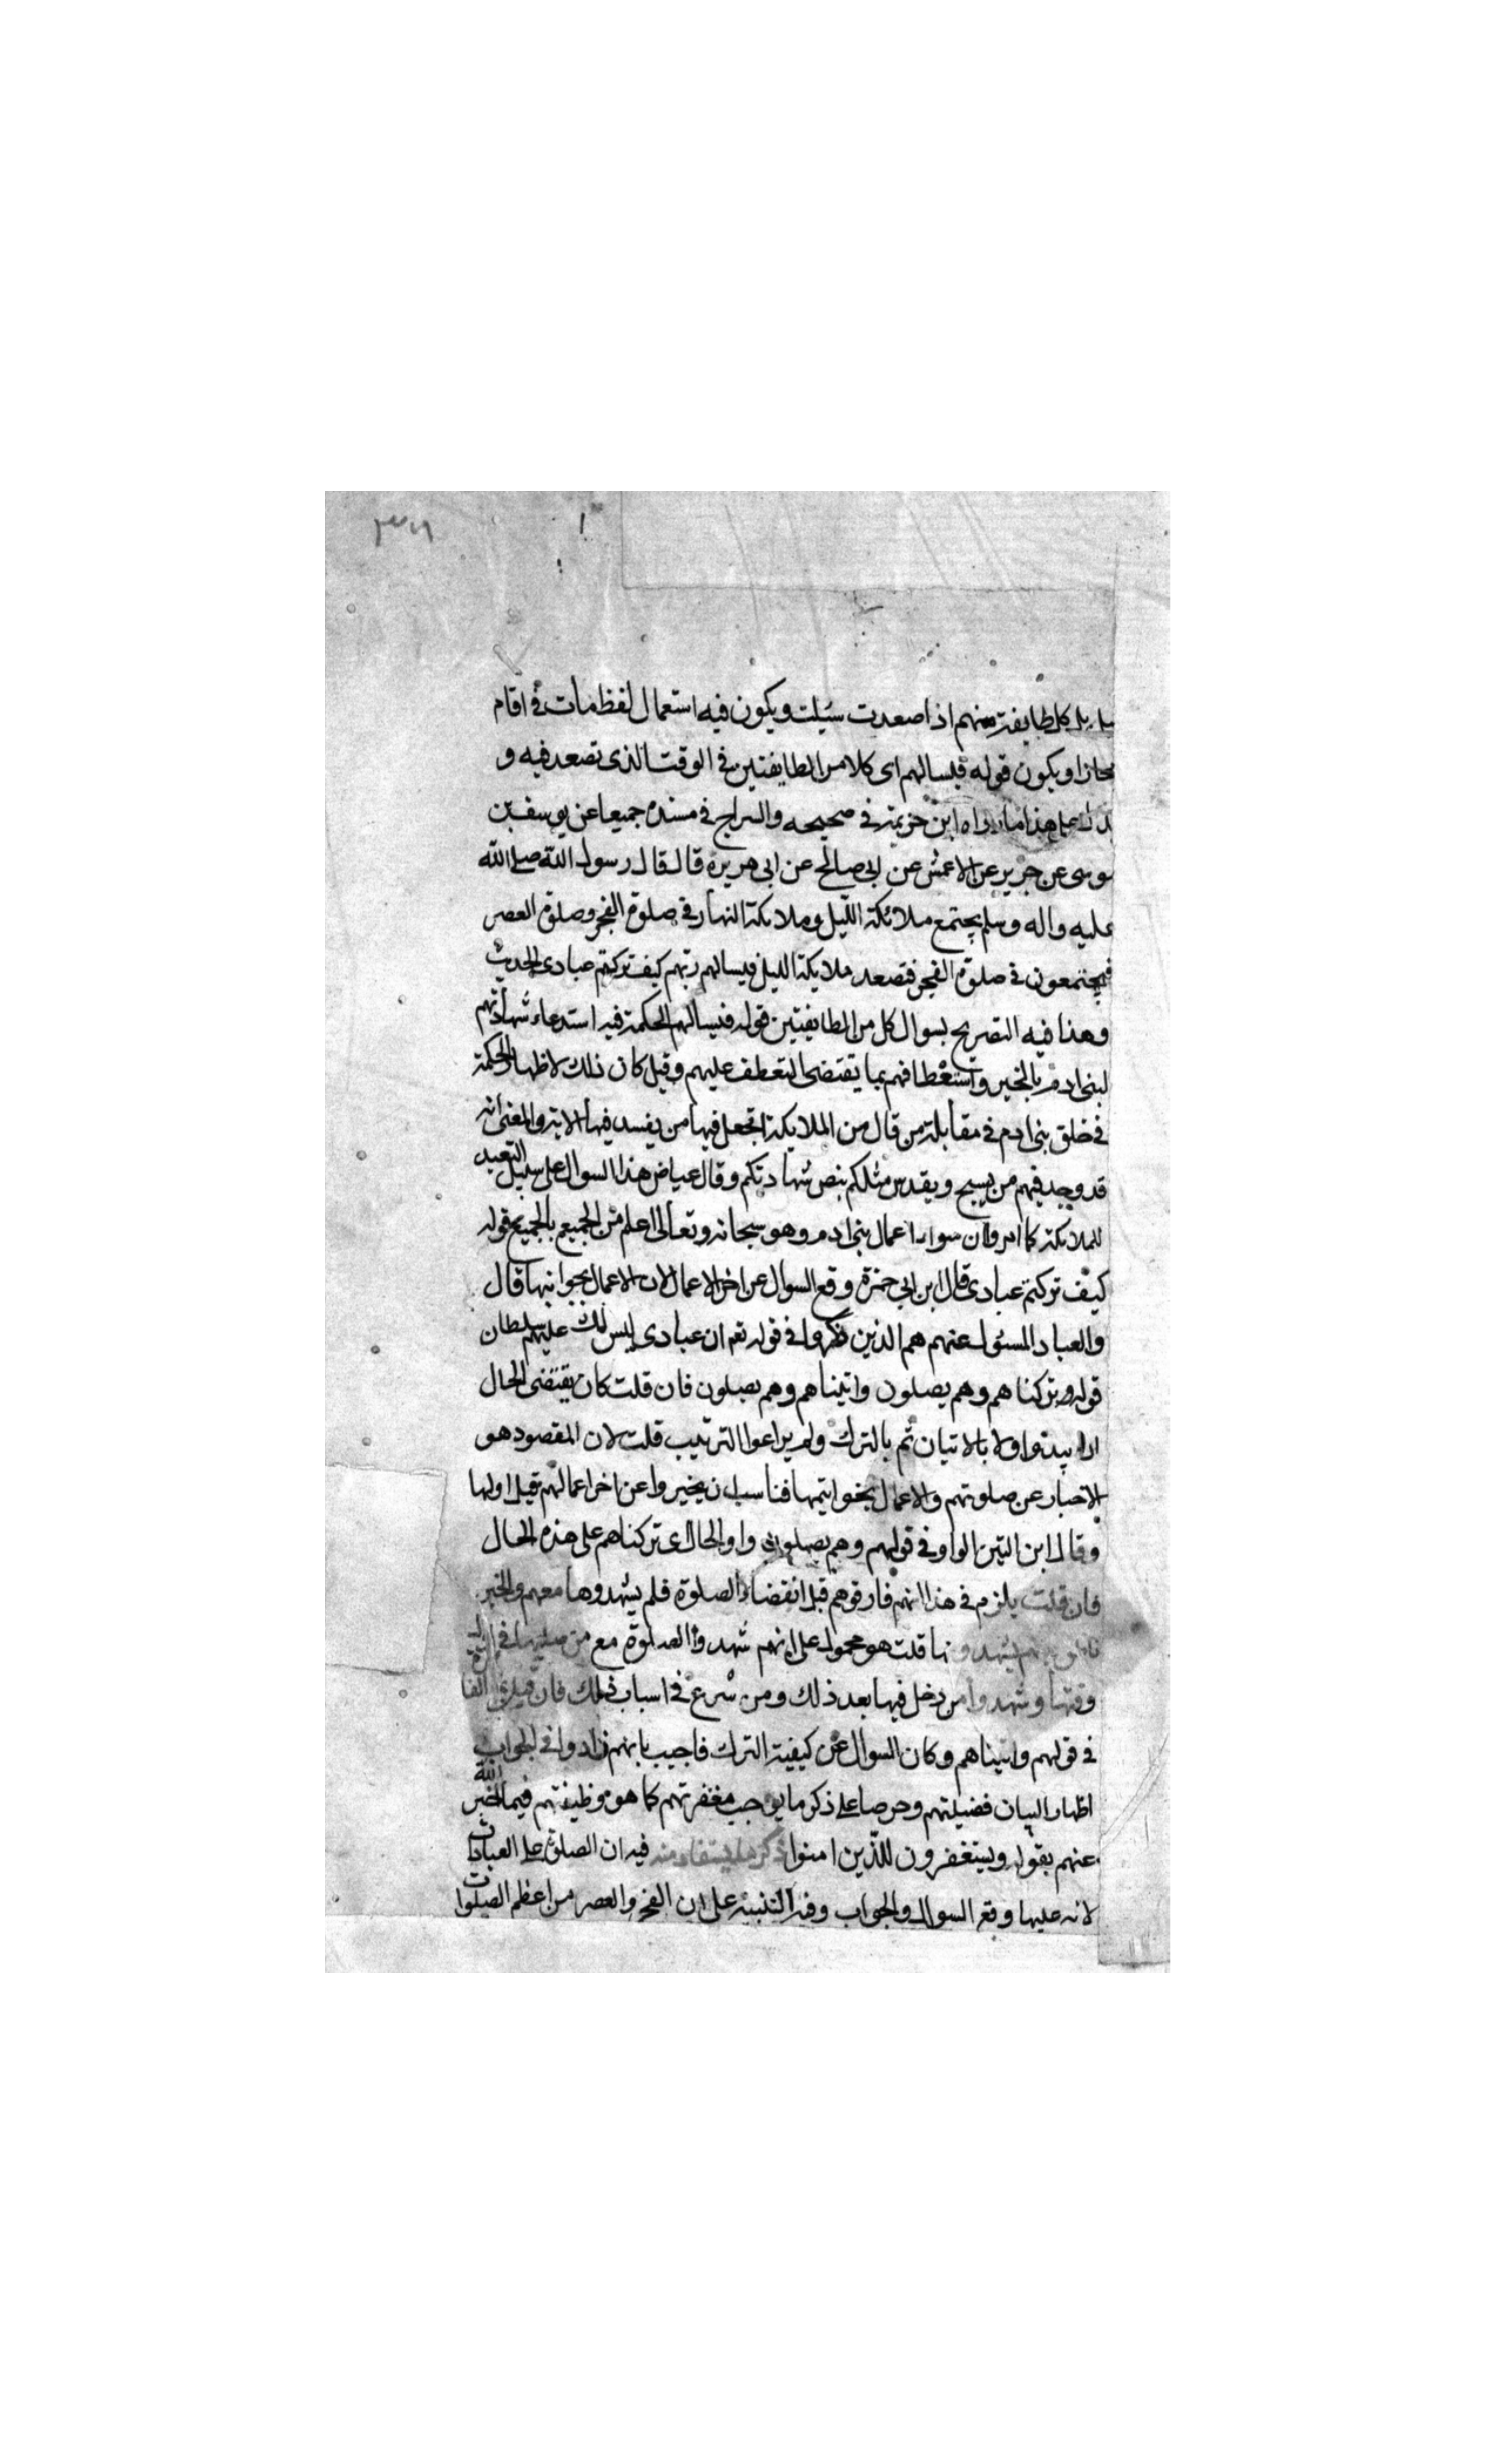 ٣٧٩
بل كل طايفة منهم اذا صعدت سئلت ويكون فيه استعمال لفظ بات في اقام
مجازا ويكون قوله فيسالهم اى كلا من الطايفتين في الوقت الذى تصعد فيه و
يدل على هذا ما رواه ابن خزيمة في صحيحه والسراج في مسنده جميعا عن يوسف بن
موسى عن جرير عن الاعمش عن ابى صالح عن ابى هريرة قال قال رسول الله صلى الله
عليه واله وسلم يجتمع ملائكة الليل وملائكة النهار في صلوة الفجر وصلوة العصر
فيجتمعون في صلوة الفجر فتصعد ملايكة الليل فيسالهم ربهم كيف تركتم عبادى الحديث
وهذا فيه التصريح بسوال كل من الطايفتين قوله فيسالهم الحكمة فيه استدعاء شهادتهم
لبنى ادم بالخير واستعطافهم بما يقتضى التعطف عليهم وقيل كان ذلك لاظهار الحكمة
في خلق بنى ادم في مقابلة من قال من الملايكة اتجعل فيها من يفسد فيها الاية والمعنى انه
قد وجد فيهم من يسبح ويقدس مثلكم بنص شهادتكم وقال عياض هذا السوال على سبيل التعبد
للملايكة كما امروا ان اعمال بنى ادم وهو سبحانه وتعالى اعلم من الجميع بالجميع قوله
كيف تركتم عبادى قال ابن ابى حمزة وقع السوال عن اخر الاعمال لان الاعمال بخواتيمها قال
والعباد المسئول عنهم هم الذين ذكروا في قوله تعم ان عبادى ليس لك عليهم سلطان
قوله وتركناهم وهم يصلون واتيناهم وهم يصلون فان قلت كان يقتضى الحال
ان يبدئوا اولا بالاتيان ثم بالترك ولم يراعوا الترتيب قلت لان المقصود هو
الاخبار عن صلوتهم والاعمال بخواتيمها فناسب ان يخبروا عن اخر اعمالهم قبل اولها
وقال ابن التين الواو في قولهم وهم يصلون واو الحال اى تركناهم على هذه الحال
فان قلت يلزم في هذا انهم فارقوهم قبل انقضاء الصلوة فلم يشهدوها معهم والخبر
ناطق بانهم يشهدونها قلت هو محمول على انهم شهدوا الصلوة مع من صليها في اول
وقتها وشهدوا من دخل فيها بعد ذلك ومن شرع في اسباب ذلك فان قيل
في قولهم واتيناهم وكان السوال عن كيفية الترك فاجيب بانهم زادوا في الجواب
اظهارا لبيان فضيلتهم وحرصا على ذكر ما يوجب مغفرتهم كما هو وظيفتهم فيما اخبر الله
عنهم بقوله ويستغفرون للذين امنوا ذكر ما يستفاد منه فيه ان الصلوة على العبادات
لانه عليها وقع السوال والجواب وفيه التنبيه على ان الفجر والعصر من اعظم الصلوات